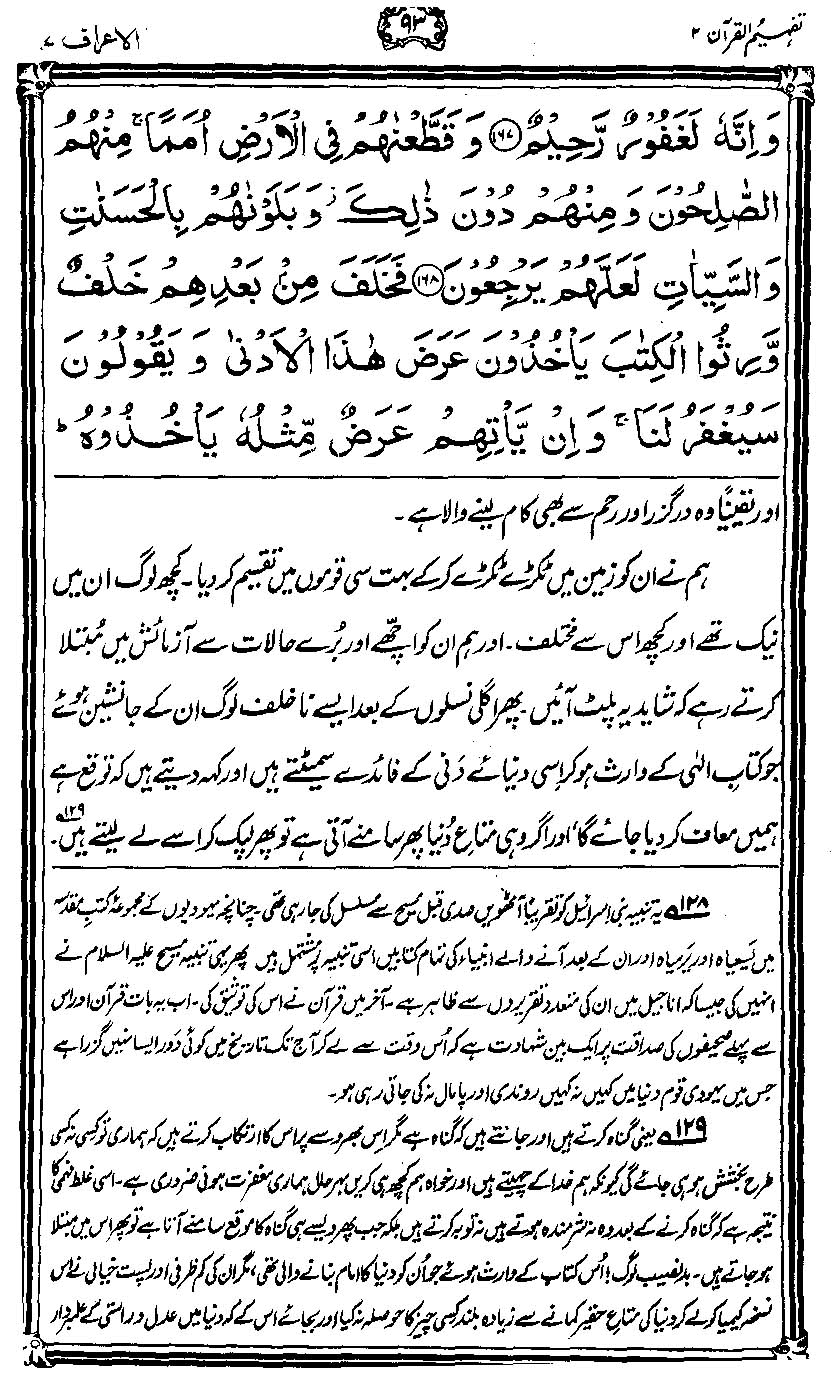 تفہیم القرآن ۲
۹۳
الاعراف ۷
وَاِنَّهٗ لَغَفُوْرٌ رَّحِيْمٌ ﴿۱۶۷﴾ وَقَطَّعْنٰهُمْ فِى الْاَرْضِ اُمَمًا ۚ مِنْهُمُ
الصّٰلِحُوْنَ وَمِنْهُمْ دُوْنَ ذٰلِكَ ۡ وَبَلَوْنٰهُمْ بِالْحَسَنٰتِ
وَالسَّيِّاٰتِ لَعَلَّهُمْ يَرْجِعُوْنَ ﴿۱۶۸﴾ فَخَلَفَ مِنْۢ بَعْدِهِمْ خَلْفٌ
وَّرِثُوا الْكِتٰبَ يَاْخُذُوْنَ عَرَضَ هٰذَا الْاَدْنٰى وَيَقُوْلُوْنَ
سَيُغْفَرُ لَنَا ۚ وَاِنْ يَّاْتِهِمْ عَرَضٌ مِّثْلُهٗ يَاْخُذُوْهُ ؕ
اور یقیناً وہ درگزر اور رحم سے بھی کام لینے والا ہے۔
ہم نے ان کو زمین میں ٹکڑے ٹکڑے کرکے بہت سی قوموں میں تقسیم کر دیا۔ کچھ لوگ ان میں
نیک تھے اور کچھ اس سے مختلف۔ اور ہم ان کو اچھے اور بُرے حالات سے آزمائش میں مُبتلا
کرتے رہے کہ شاید یہ پلٹ آئیں۔ پھر اگلی نسلوں کے بعد ایسے ناخلف لوگ ان کے جانشین ہوئے
جو کتابِ الٰہی کے وارث ہو کر اِسی دنیائے دَنی کے فائدے سمیٹتے ہیں اور کہہ دیتے ہیں کہ توقع ہے
ہمیں معاف کر دیا جائے گا، اور اگر وہی متاعِ دُنیا پھر سامنے آتی ہے تو پھر لپک کر اسے لے لیتے ہیں۔ ۱۲۹
۱۲۸ یہ تنبیہ بنی اسرائیل کو تقریباً آٹھویں صدی قبل مسیح سے مسلسل کی جا رہی تھی۔ چنانچہ یہودیوں کے مجموعۂ کتبِ مقدسہ
میں یسعیاہ اور یرمیاہ اور ان کے بعد آنے والے انبیاء کی تمام کتابیں اسی تنبیہ پر مشتمل ہیں پھر یہی تنبیہ مسیح علیہ السلام نے
انہیں کی جیسا کہ اناجیل میں ان کی متعدد تقریروں سے ظاہر ہے۔ آخر میں قرآن نے اس کی توثیق کی۔ اب یہ بات قرآن اور اس
سے پہلے صحیفوں کی صداقت پر ایک بین شہادت ہے کہ اُس وقت سے لے کر آج تک تاریخ میں کوئی دَور ایسا نہیں گزرا ہے
جس میں یہودی قوم دنیا میں کہیں نہ کہیں روندی اور پامال نہ کی جاتی رہی ہو۔
۱۲۹ یعنی گناہ کرتے ہیں اور جانتے ہیں کہ گناہ ہے مگر اس بھروسے پر اس کا ارتکاب کرتے ہیں کہ ہماری تو کسی نہ کسی
طرح بخشش ہو ہی جائے گی کیونکہ ہم خدا کے چہیتے ہیں اور خواہ ہم کچھ ہی کریں بہرحال ہماری مغفرت ہونی ضروری ہے۔ اسی غلط فہمی کا
نتیجہ ہے کہ گناہ کرنے کے بعد وہ نہ شرمندہ ہوتے ہیں نہ توبہ کرتے ہیں بلکہ جب پھر ویسے ہی گناہ کا موقع سامنے آتا ہے تو پھر اس میں مبتلا
ہو جاتے ہیں۔ بدنصیب لوگ! اُس کتاب کے وارث ہوئے جو اُن کو دنیا کا امام بنانے والی تھی، مگر ان کی کم ظرفی اور پست خیالی نے اس
نسخۂ کیمیا کو لے کر دنیا کی متاعِ حقیر کمانے سے زیادہ بلند کسی چیز کا حوصلہ نہ کیا اور بجائے اس کے کہ دنیا میں عدل و راستی کے علمبردار